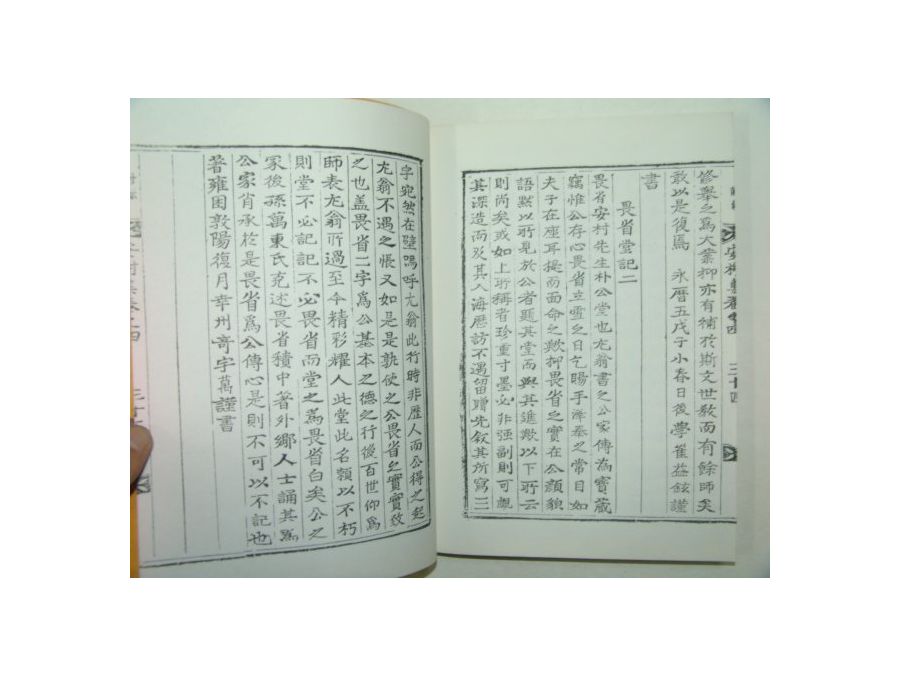 安村集卷之四
三十四
修擧之爲大業抑亦有補於斯文世敎而有餘師矣
敢以是復焉 永曆五戊子小春日後學崔益鉉謹
書
畏省堂記二
畏省安村先生朴公堂也尤翁書之公家傳為寶藏
竊惟公存心畏省立雪之日乞賜手滓奉之常目如
夫子在座耳提而面命之歟抑畏省之實在公顔貌
語默以所見於公者題其堂而與其進歟以下所云
則尚矣或如上所稱者珍重寸墨必非强副則可覸
其深造而及其人海曆訪不遇留贈先敘其所寫三
字宛然在壁嗚呼尤翁此行時非歷人而公得之起
尤翁不遇之悵又如是是孰使之公畏省之實實致
之也盖畏省二字爲公基本之德之行後百世仰爲
師表尤翁所過至今精彩耀人此堂此名額以不朽
則堂不必記記不必畏省而堂之爲畏省白矣公之
冢後孫萬東氏克述畏省積中著外鄉人士誦其爲
公家肖承於是畏省爲公傳心是則不可以不記也
著雍困敦陽復月幸州奇宇萬謹書